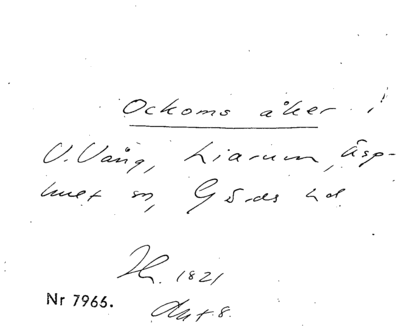 Ockoms åker i
V. Vång, Liarum, Äsp-
huet sn, Gärds hd
1821
Nr 7965.
Akt 8.